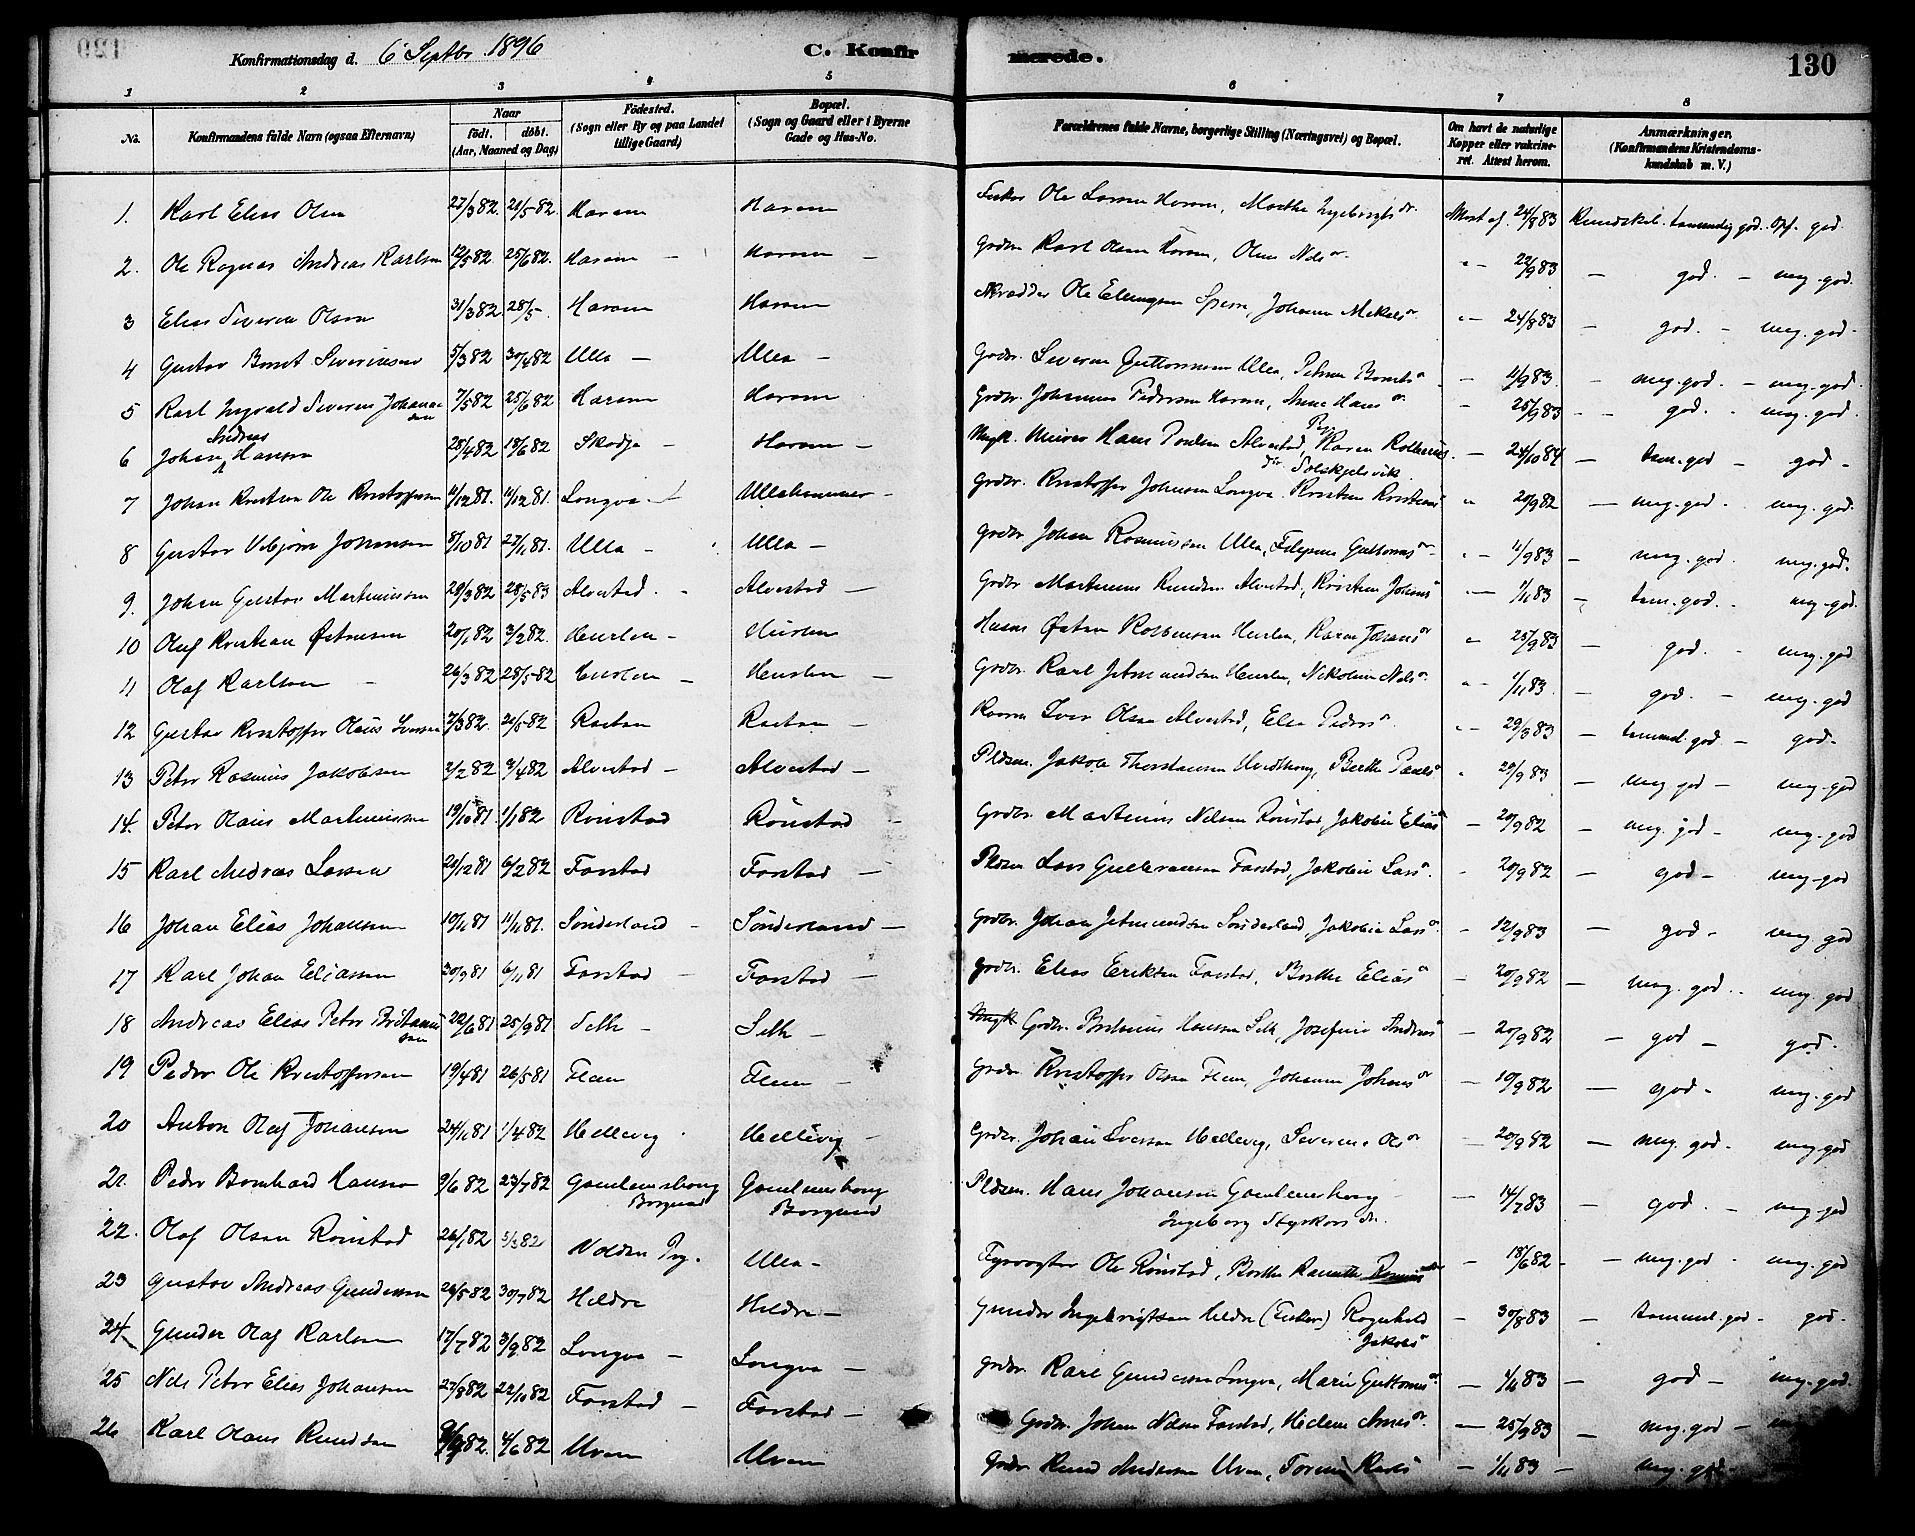 Konfirmationsdag d. 6 Septbr. 1896 C. Konfirmerede. 130
1 2 3 4 5 6 7 8
No. Konfirmandens fulde Navn (ogsaa Efternavn) Naar født. døbt. (Aar, Maaned og Dag) Födested. (Sogn eller By og paa Landet tillige Gaard) Bopæl. (Sogn og Gaard eller i Byerne Gade og Hus-No. Forældrenes fulde Navne, borgerlige Stilling (Næringsvei) og Bopæl. Om havt de naturlige Kopper eller vaksineret. Attest herom. Anmærkninger. (Konfirmandens Kristendomskundskab m. V.)
1. Karl Elias Olsen 27/3 82. 21/5 82. Haram Haram Ole Larsen Haram, Marthe Ingebrigts dr. Attest af 24/8 83 Kundskab temmelig god. Opf. god
2. Ole Ragnar Andreas Karlsen 12/5 82. 25/6 82. Haram Haram Grdbr. Karl Olsen Haram, Nils dr. 22/9 83 god. meg. god.
3 Elias Severin Olsen 31/3 82 28/5 Haram Haram Skrædder Ole Ellingsen Johanne Mikals dr. 24/8 83 god. meg. god.
4 Gustav Bernt Severinsen 5/3 82 30/4 82 Ulla Ulla Grdbr. Severin Guttormsen Ulla, Petrine Bernts dr. 11/9 83. meg. god. meg. god.
5 Karl Ingvald Severin Johannessen 7/5 82 25/6 82 Haram Haram Grdbr. Johannes Pedersen Haram, Anne Hans dr. 25/9 83 god. meg. god.
6 Johan Andreas Hansen 28/4 82 18/6 82 Skodje Haram Ungk. Hans Poulsen Alvestad, Pige Karen 24/10 84 tem. god god
7 Johan Kristian Ole Kristoffersen 11/12 81. 11/12 81. Longva Ullahammer Grdbr. Kristoffer Johnsen Longva. 20/9 82 meg. god. meg. god.
8 Gustav Vebjørn Johansen 8/10 81 27/11 81. Ulla Ulla Grdbr. Johan Rasmussen Ulla, Guttorms dr. 11/9 83 meg. god. meg. god.
9. Johan Gustav Martinussen 28/3 82 28/5 83 Alvestad. Alvestad Grdbr. Martinus Knudsen Alvestad, 1/11 83 tem. god. meg. god.
10 Oluf Kristian Østensen 20/1 82 3/2 82. Heurlen Heurlen Østen Heurlen, Karen Johans dr. 25/9 83 god. meg. god
11 Olaf Karlsen 26/3 82 28/5 82 Heurlen Heurlen Grdbr. Karl Jetmundsen Heurlen, Nikoline Nils dr. 1/11 83. god. meg. god
12 Gustav Kristoffer Olaus Iversen 7/3 82. 21/5 82 Rastan Rastan Iver Olsen Alvestad, Else Peders dr. 29/3 83 temmel. god god.
13 Peter Rasmus Jakobsen 2/2 82 9/4 82 Alvestad Alvestad Pldsm. Jakob Thorstensen Berthe Pauls dr. 29/9 83 meg god meg. god
14. Peter Olaus Martinussen 19/10 81 1/1 82 Rønstad Rønstad Grdbr. Martinus Nilsen Rønstad, Jakobine Elias dr. 20/9 82 meg. god meg. god
15 Karl Andreas Larsen 21/12 81 6/2 82 Farstad Farstad Pldsm. Lars Gulbransen Farstad, Jakobine Lars dr. 20/9 82 god meg. god
16 Johan Elias Johansen 10/11 81 11/11 81. Sønderland Sønderland Grdbr. Johan Jetmundsen Sønderland, Jakobine Lars dr. 12/9 83 god. meg. god
17 Karl Johan Eliassen 20/9 81 6/11 81 Farstad Farstad Grdbr. Elias Eriksen Farstad, Berthe Elias dr. 20/9 82 meg. god. meg. god
18 Andreas Elias Peter 22/6 81 25/9 81 Selh Selh Grdbr. Hansen Selh, Josefine Andreas dr. 20/9 82 god god.
19 Peder Ole Kristoffersen 19/4 81 26/5 81 Flem Flem Grdbr. Kristoffer Olsen Flem, Johanne Johans dr. 10/9 82 god. meg. god
20 Anton Oluf Johansen 24/11 81 1/4 82 Hellevig Hellevig Grdbr. Johan Iversen Hellevig, Severine Ols dr. 20/9 82 meg. god. meg. god
21. Peder Bernhard Hansen 9/6 82 23/7 82 Gamlemsborg Borgund Gamlemsborg Borgund Pldsm. Hans Johansen Gamlemsborg Ingeborg Styrkors dr. 14/7 83 god. meg. god
22. Olaf Olsen Rønstad 26/1 82 5/3 82 Ulla Fyrvogter Ole Rønstad, Berthe 18/6 82 meg. god meg. god
23 Gustav Andreas Gundersen 26/5 82 30/7 82 Hildre Hildre Gunder Ingebrigtsen Hildre (Fisker) Ragnhild Jakobs dr. 30/8 83 temmel. god god.
24 Gunder Olaf Karlsen 17/7 82 3/9 82 Longva Longva Grdbr. Karl Gundersen Longva, Marie Guttorms dr. 1/11 83 god meg. god.
25 Nils Peter Elias Johansen 27/8 82 22/10 82 Farstad Farstad Grdbr. Johan Nilsen Farstad, Helene Arnes dr. 25/9 83 meg. god
26 Karl Olaus Knudsen 82. 4/6 82 Uren Uren Grdbr. Knud Andersen Uren, 1/11 83 meg. god.